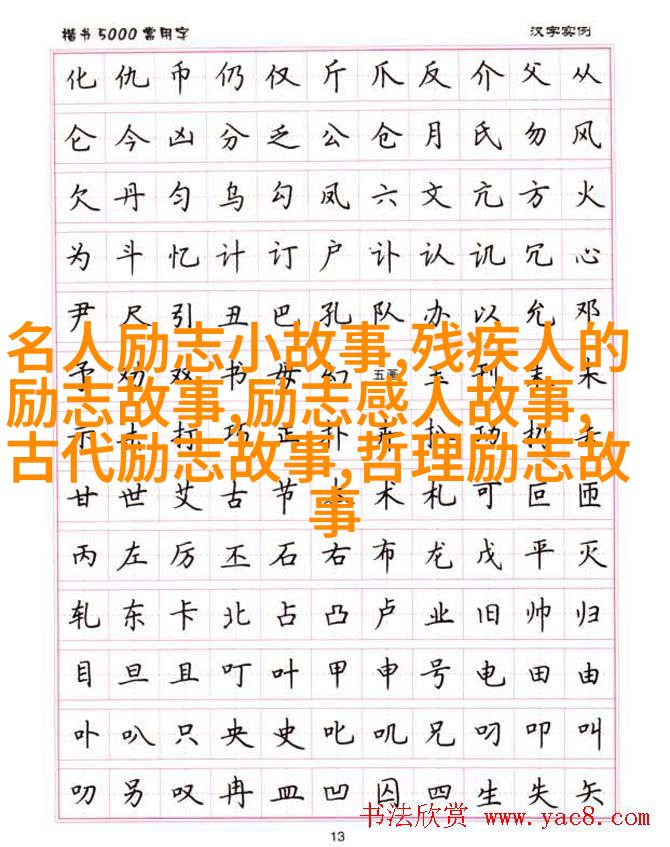 楷书5000常用字 汉字实例
化 仇 币 仍 仅 斤 爪 反 介 父 从
仑 今 凶 分 乏 公 仓 月 氏 勿 风
欠 丹 匀 乌 勾 凤 六 文 亢 方 火
为 斗 忆 计 订 户 讣 认 讥 冗 心
尹 尺 引 丑 巴 孔 队 办 以 允 邓
名人励志小故事,残疾人的
予 劝 双 书 毋 幻 五画
励志故事,励志感人故事,
古代励志故事,哲理励志故
甘 世 艾 古 节 术 札 可 叵 匝
事
丙 左 厉 丕 石 右 布 龙 戊 平 灭
轧 东 卡 北 占 凸 卢 业 旧 帅 归
目 旦 且 叮 叶 甲 申 号 电 田 由
卟 叭 只 央 史 叱 叽 兄 叼 叩 叫
叻 另 叹 冉 皿 凹 囚 四 生 失 矢
书法欣赏 www.yac8.com
13